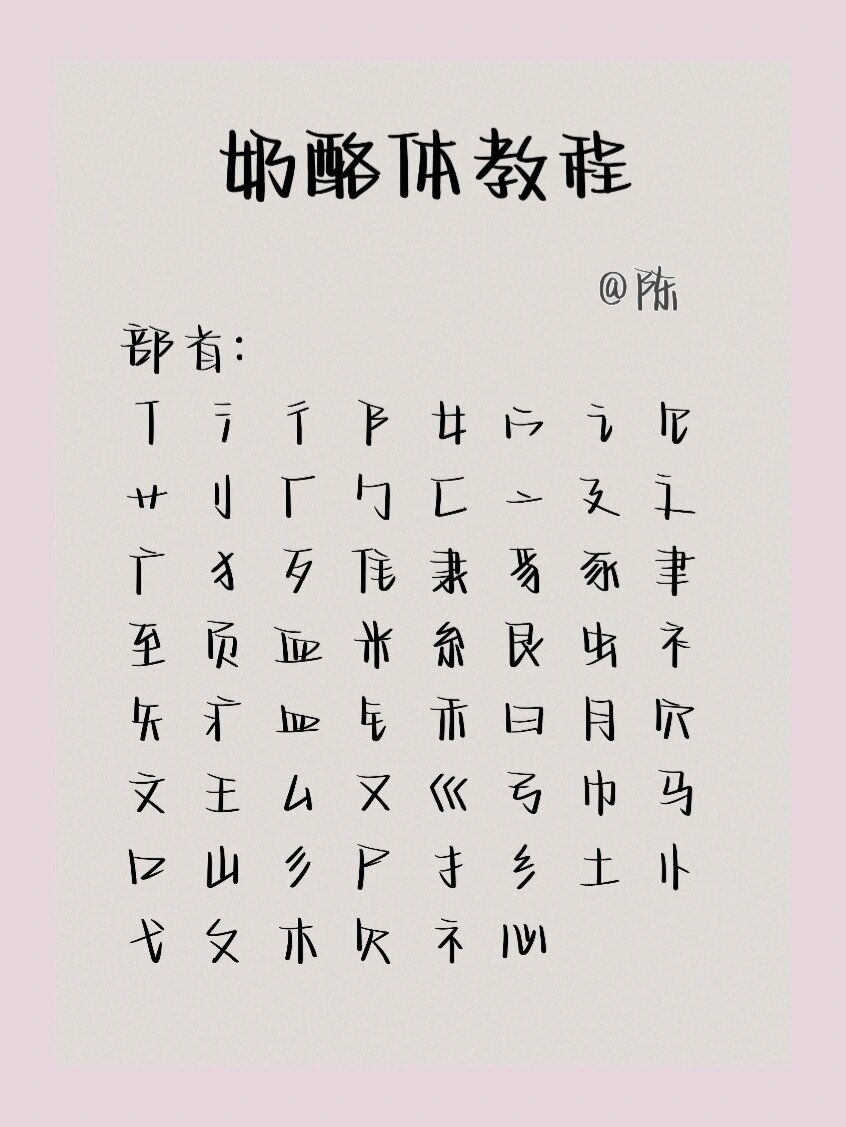 奶酪体教程
@陈
部首：
亻 氵 彳 阝 女 宀 讠 饣
艹 刂 厂 勹 匚 亠 廴 辶
广 犭 歹 隹 隶 豸 豕 聿
至 页 血 米 糸 艮 虫 衤
矢 疒 皿 钅 禾 日 月 穴
文 王 厶 又 巛 弓 巾 马
口 山 彡 尸 扌 纟 土 忄
弋 夂 木 欠 礻 心